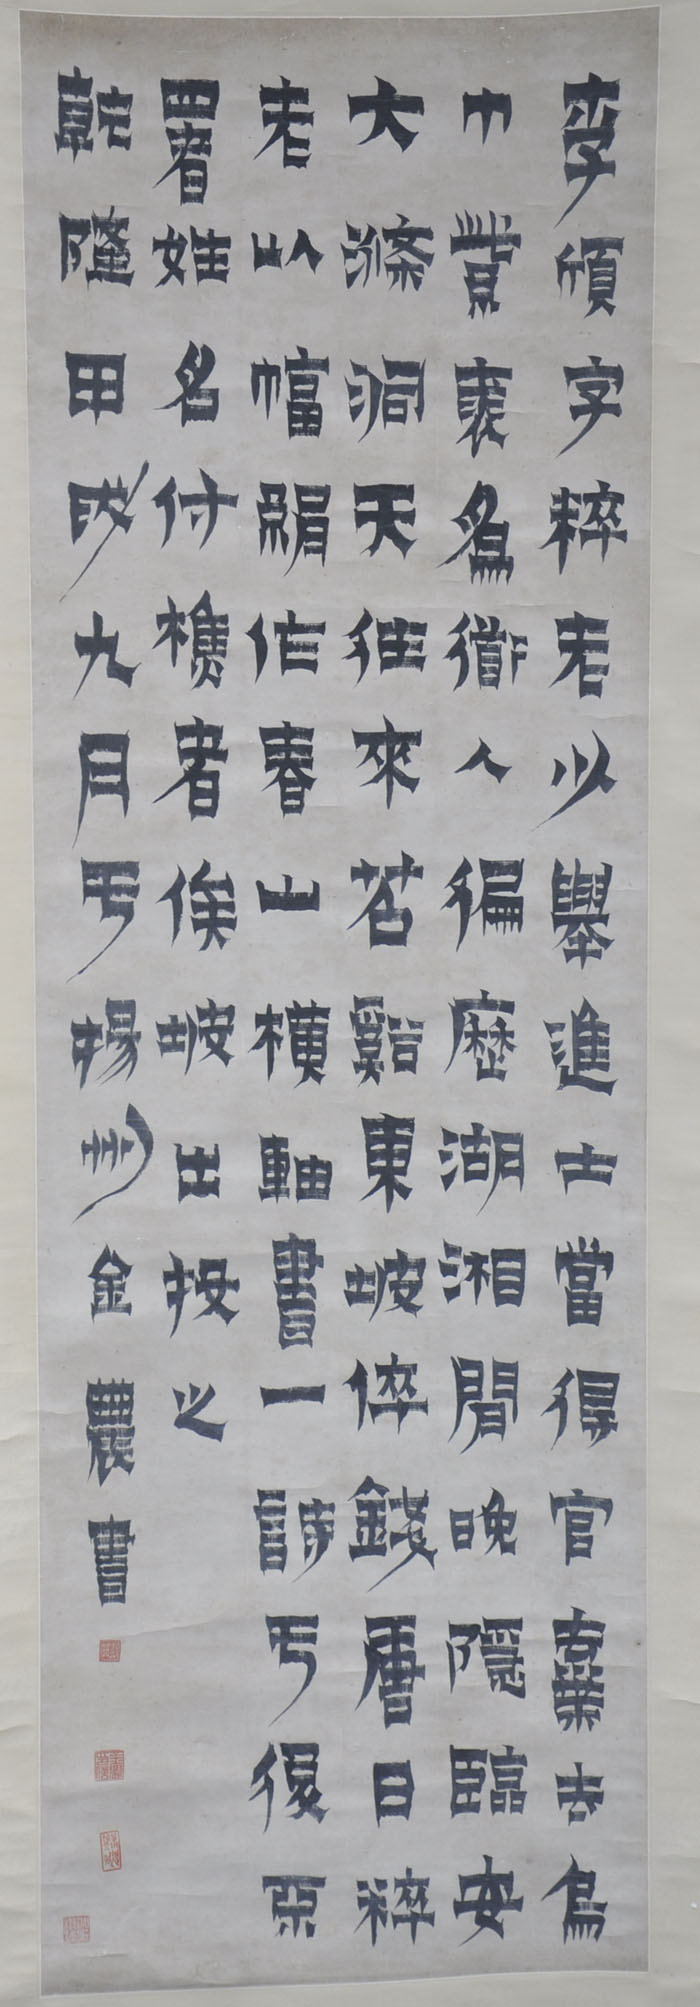 李頎字粹老以舉進士當得官棄去烏
巾紫裘為衜人徧歷湖湘間晚隱臨安
大滌洞天往來苕谿東坡倅錢唐日粹
老以幅絹作春山橫軸書一詩于後不
署姓名付樵者俟坡出投之
乾隆甲戌九月于揚州金農書